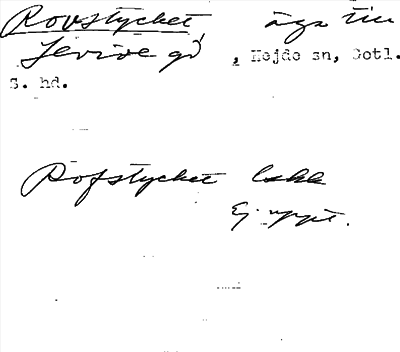 Rovstycket, äga till
Levide gd, Hejde sn, Gotl.
S. hd.
Rofstycket Eskk
Ej uppt.